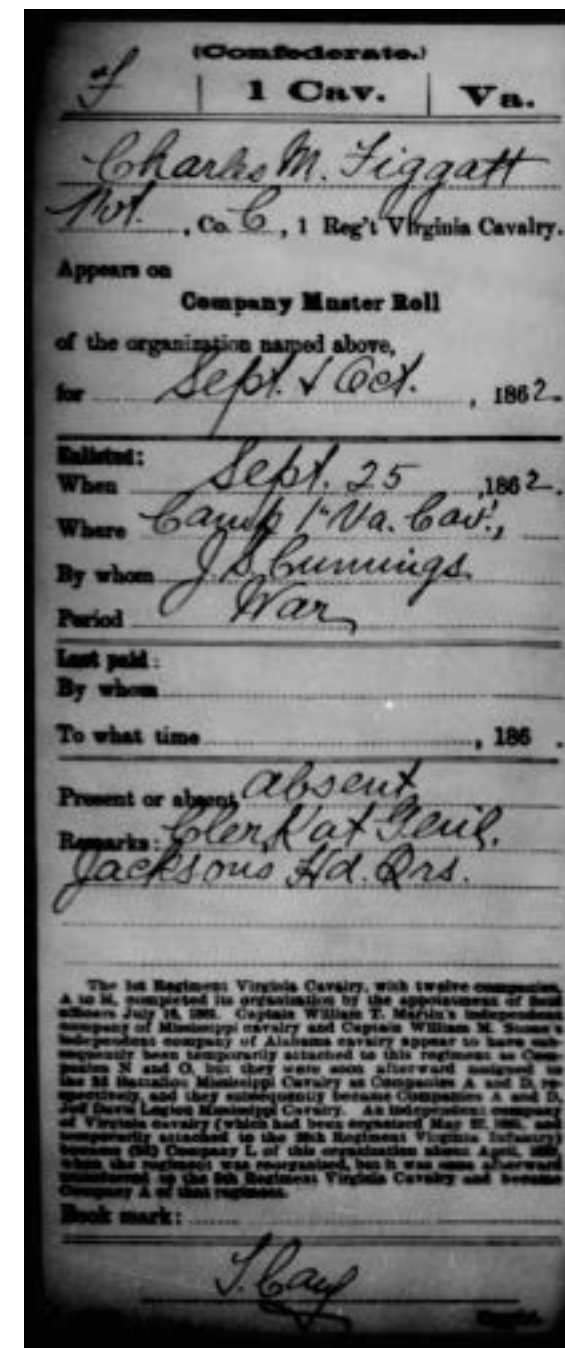 (Confederate.)
F | 1 Cav. | Va.
Charles M. Figgatt
Pvt., Co. C, 1 Reg't Virginia Cavalry.
Appears on
Company Muster Roll
of the organization named above,
for Sept. & Oct., 1862.
Enlisted:
When Sept. 25, 1862.
Where Camp 1st Va. Cav.,
By whom J S Cummings
Period War
Last paid:
By whom
To what time , 186 .
Present or absent absent
Remarks: Clerk at Genl.
Jacksons Hd. Qrs.
The 1st Regiment Virginia Cavalry, with twelve companies,
A to M, completed its organization by the appointment of field
officers July 16, 1861. Captain William T. Martin's independent
company of Mississippi cavalry and Captain William M.
independent company of Alabama cavalry appear to have sub-
sequently been temporarily attached to this regiment as Com-
panies N and O, but they were soon afterward assigned to
the 2d Battalion Mississippi Cavalry as Companies A and D, re-
spectively, and they subsequently became Companies A and D,
Jeff Davis Legion Mississippi Cavalry. An independent company
of Virginia cavalry (which had been organized May and
temporarily attached to the Regiment Virginia Infantry)
Company L of this organization about April,
when the regiment was reorganized, but it was soon afterward
transferred to the Regiment Virginia Cavalry and became
Company A of that regiment.
Book mark: